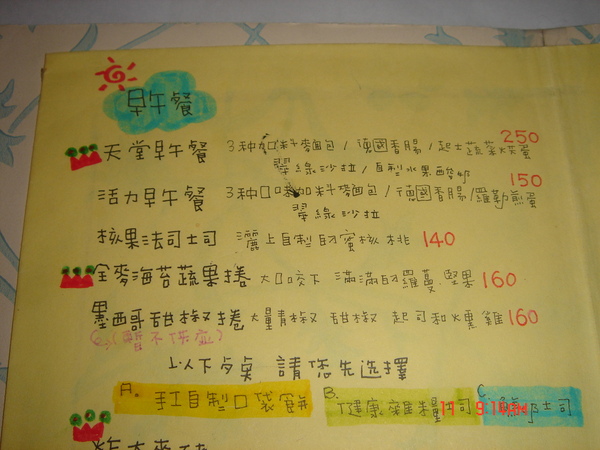 早午餐
天堂早午餐 3種加料麵包/德國香腸/起士蔬菜烘蛋 250
翠綠沙拉/自製水果酸奶
活力早午餐 3種口味加料麵包/德國香腸/羅勒煎蛋 150
翠綠沙拉
核果法司土司 灑上自制的蜜核桃 140
全麥海苔蔬果捲 大口咬下 滿滿的蘿蔓.堅果 160
墨西哥甜椒捲 大量青椒 甜椒 起司和燻雞 160
暫不供應)
以下 請您先選擇
A. 手工自制口袋餅 B. 健康雜糧土司 C. 土司